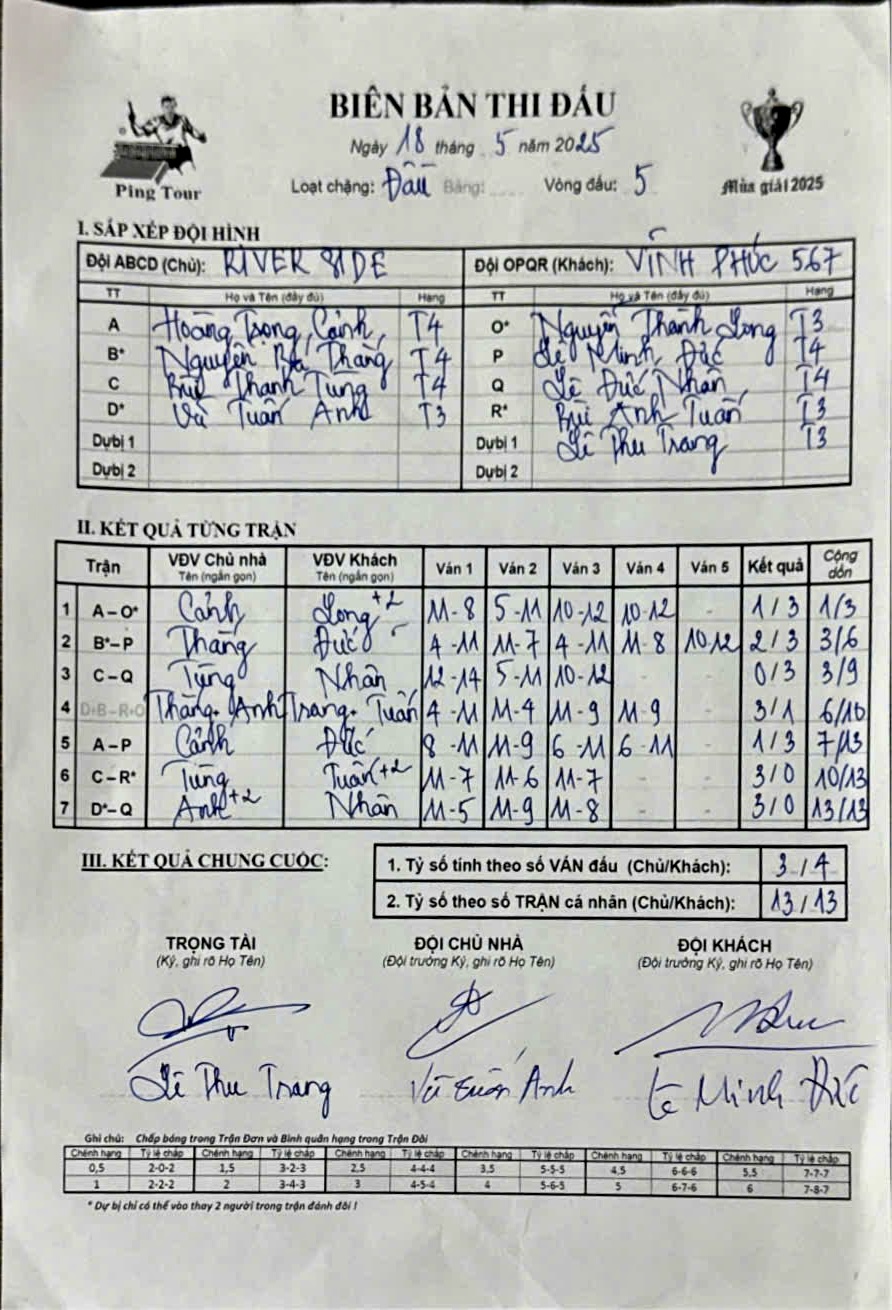 BIÊN BẢN THI ĐẤU
Ngày 18 tháng 5 năm 2025
Ping Tour
Loạt chặng: Đấu Bảng: ..... Vòng đấu: 5
Mùa giải 2025
I. SẮP XẾP ĐỘI HÌNH
Đội ABCD (Chủ): RIVER SIDE Đội OPQR (Khách): VĨNH PHÚC 567
TT Họ và Tên (đầy đủ) Hạng TT Họ và Tên (đầy đủ) Hạng
A Hoàng Trọng Cảnh T4 O* Nguyễn Thành Long T3
B* Nguyễn Bá Thắng T4 P Lê Minh Đức T4
C Bùi Thanh Tùng T4 Q Lê Đức Nhân T4
D* Vũ Tuấn Anh T3 R* Bùi Anh Tuấn T3
Dự bị 1 Dự bị 1 Lê Thu Trang T3
Dự bị 2 Dự bị 2
II. KẾT QUẢ TỪNG TRẬN
Trận VĐV Chủ nhà Tên (ngắn gọn) VĐV Khách Tên (ngắn gọn) Ván 1 Ván 2 Ván 3 Ván 4 Ván 5 Kết quả Cộng dồn
1 A – O* Cảnh Long +2 11-8 5-11 10-12 10-12 - 1/3 1/3
2 B* – P Thắng Đức 4-11 11-7 4-11 11-8 10-12 2/3 3/6
3 C – Q Tùng Nhân 12-14 5-11 10-12 - - 0/3 3/9
4 D+B – R+O Thắng+ Anh Trang+ Tuấn 4-11 11-4 11-9 11-9 - 3/1 6/10
5 A – P Cảnh Đức 8-11 11-9 6-11 6-11 - 1/3 7/13
6 C – R* Tùng Tuấn +2 11-7 11-6 11-7 - - 3/0 10/13
7 D* – Q Anh +2 Nhân 11-5 11-9 11-8 - - 3/0 13/13
III. KẾT QUẢ CHUNG CUỘC:
1. Tỷ số tính theo số VÁN đấu (Chủ/Khách): 3/4
2. Tỷ số theo số TRẬN cá nhân (Chủ/Khách): 13/13
TRỌNG TÀI ĐỘI CHỦ NHÀ ĐỘI KHÁCH
(Ký, ghi rõ Họ Tên) (Đội trưởng Ký, ghi rõ Họ Tên) (Đội trưởng Ký, ghi rõ Họ Tên)
Lê Thu Trang Vũ Tuấn Anh Lê Minh Đức
Ghi chú: Chấp bóng trong Trận Đơn và Bình quân hạng trong Trận Đôi
Chênh hạng Tỷ lệ chấp Chênh hạng Tỷ lệ chấp Chênh hạng Tỷ lệ chấp Chênh hạng Tỷ lệ chấp Chênh hạng Tỷ lệ chấp Chênh hạng Tỷ lệ chấp
0,5 2-0-2 1,5 3-2-3 2,5 4-4-4 3,5 5-5-5 4,5 6-6-6 5,5 7-7-7
1 2-2-2 2 3-4-3 3 4-5-4 4 5-6-5 5 6-7-6 6 7-8-7
* Dự bị chỉ có thể vào thay 2 người trong trận đánh đôi !